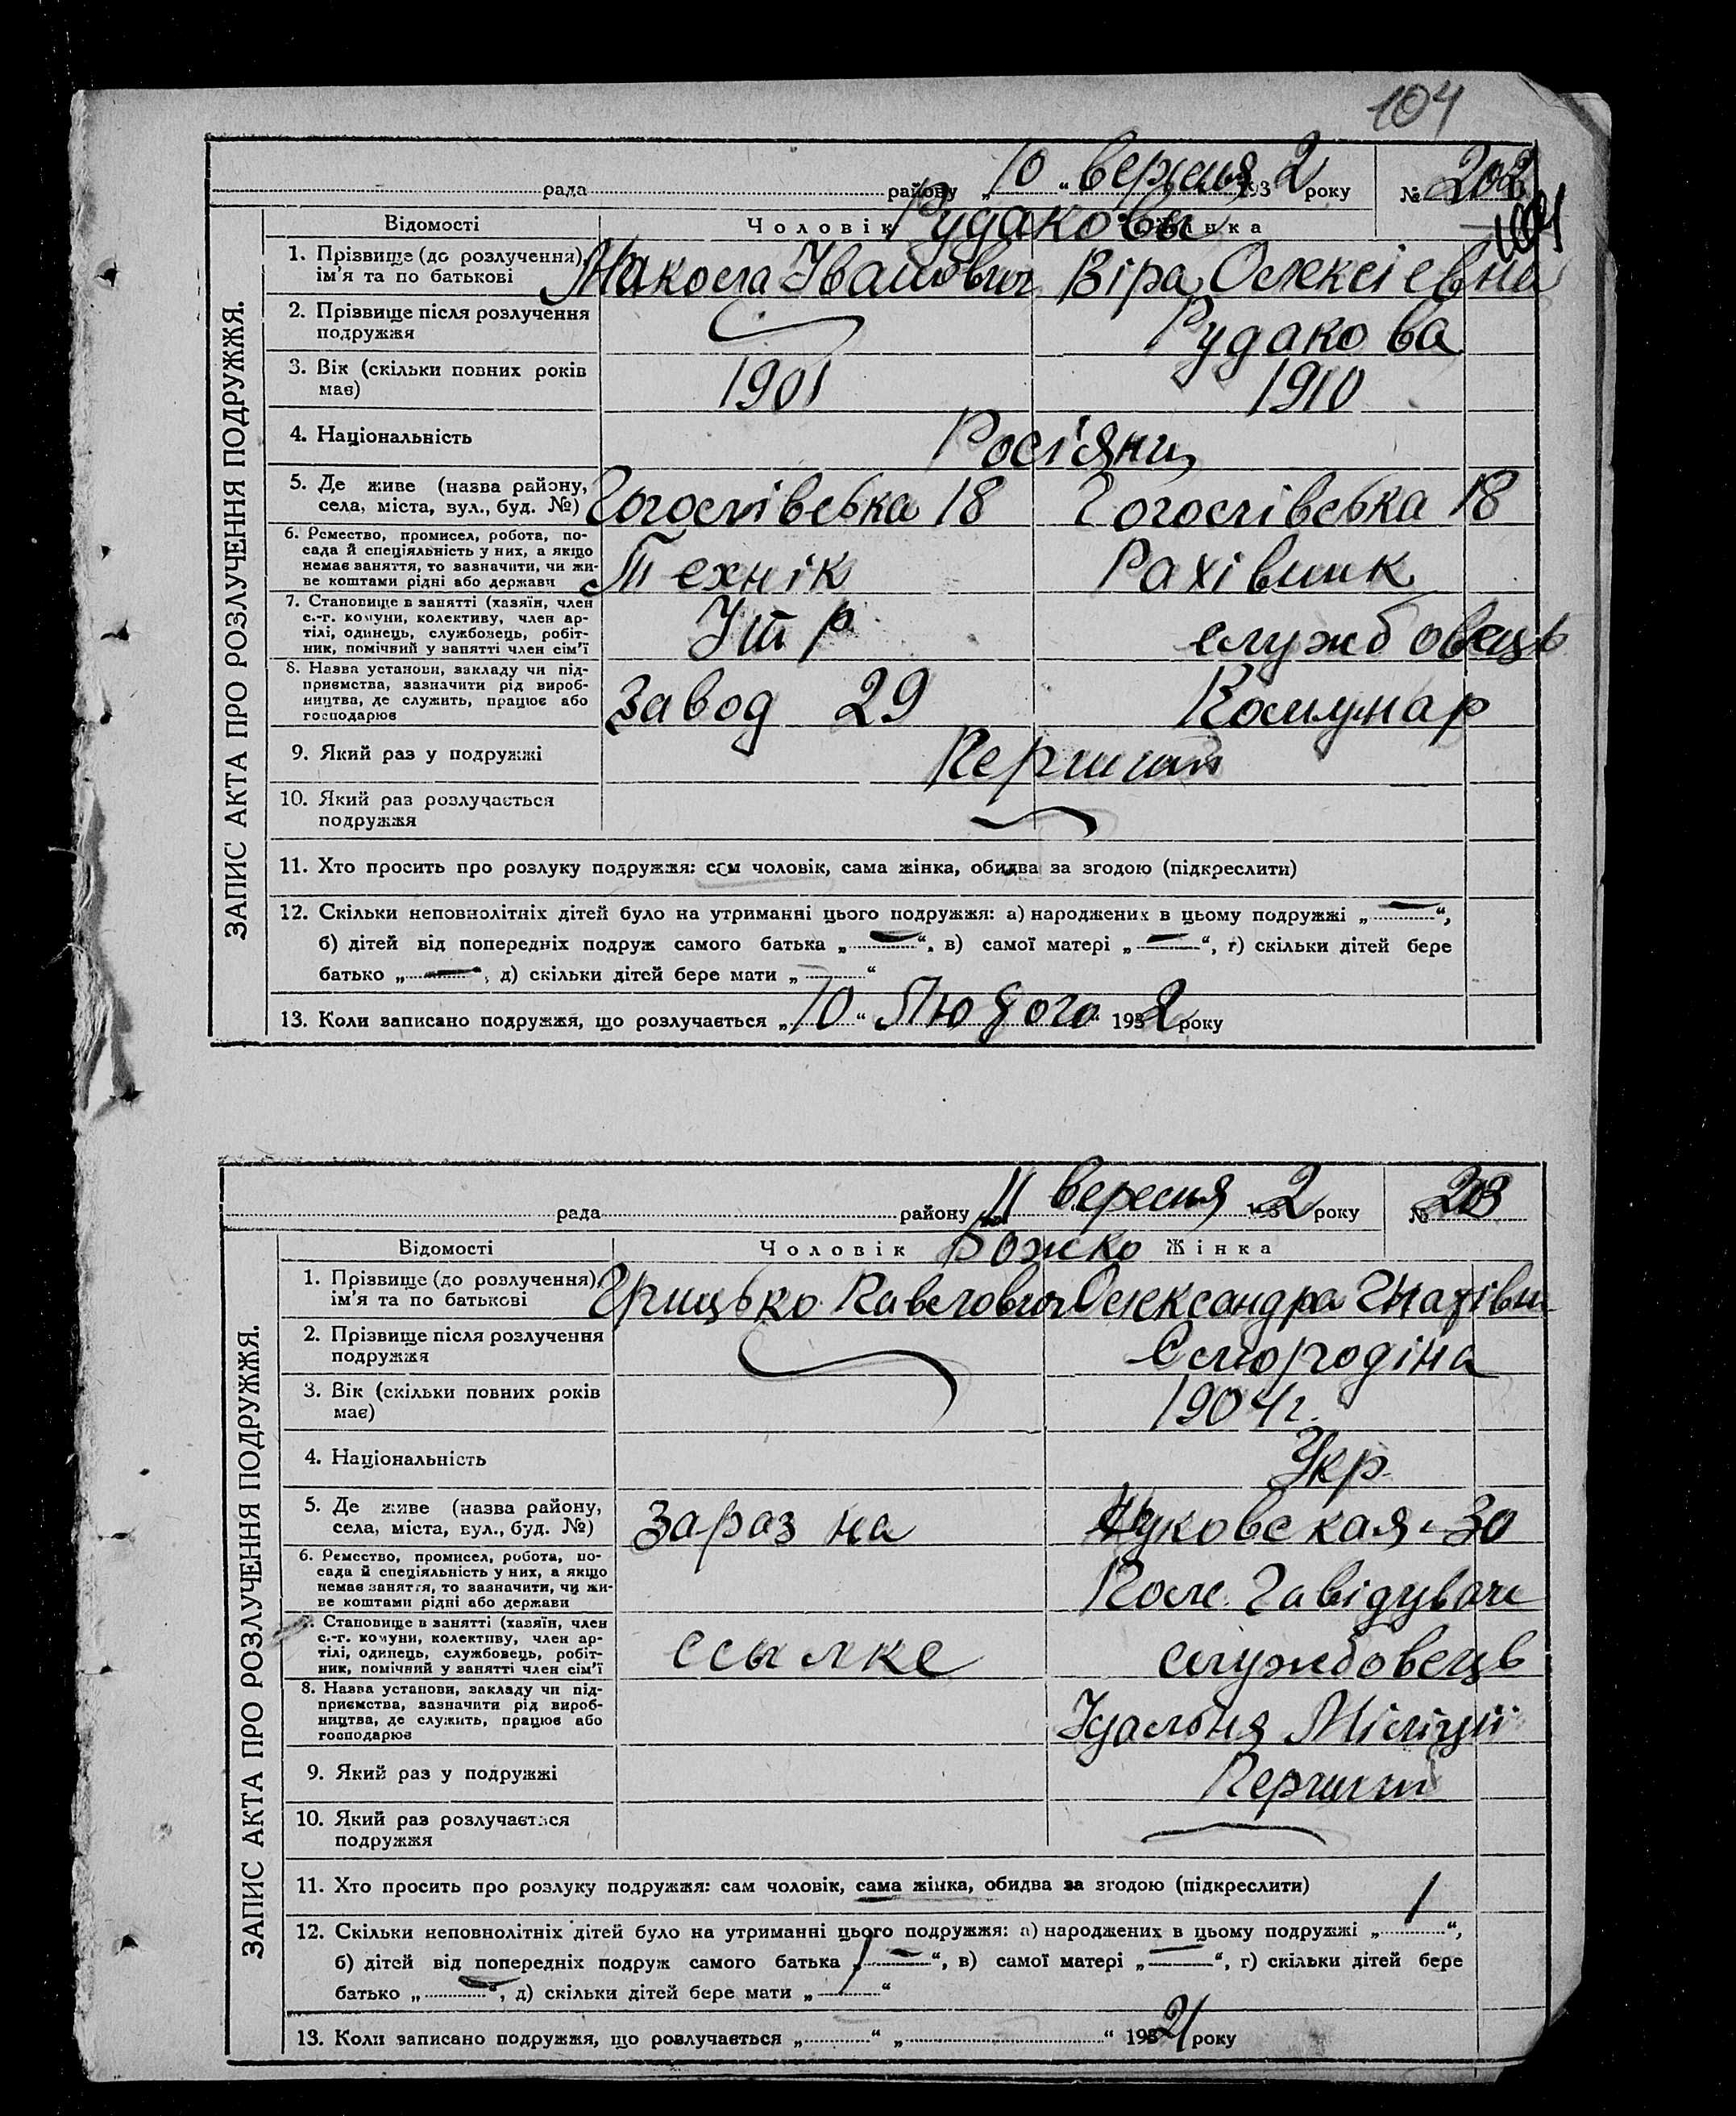 104
рада району „10“ вересня 1932 року № 202
104
Відомості Чоловік Жінка
Рудакови
ЗАПИС АКТА ПРО РОЗЛУЧЕННЯ ПОДРУЖЖЯ.
1. Прізвище (до розлучення), Микола Іванович Віра Олексіевна
ім'я та по батькові
2. Прізвище після розлучення Рудакова
подружжя
3. Вік (скільки повних років 1901 1910
має)
4. Національність Росіяни
5. Де живе (назва району, Гоголівська 18 Гоголівська 18
села, міста, вул., буд. №)
6. Ремество, промисел, робота, по-
сада й спеціяльність у них, а якщо
немає заняття, то зазначити, чи жи- Технік Рахівник
ве коштами рідні або держави
7. Становище в занятті (хазяїн, член
с.-г. комуни, колективу, член ар-
тілі, одинець, службовець, робіт- Ітр службовець
ник, помічний у занятті член сім'ї
8. Назва установи, закладу чи під-
приємства, зазначити рід вироб-
ництва, де служить, працює або Завод 29 Комунар
господарює
9. Який раз у подружжі Перший
10. Який раз розлучається
подружжя
11. Хто просить про розлуку подружжя: сам чоловік, сама жінка, обидва за згодою (підкреслити)
12. Скільки неповнолітніх дітей було на утриманні цього подружжя: а) народжених в цьому подружжі „—“,
б) дітей від попередніх подруж самого батька „—“, в) самої матері „—“, г) скільки дітей бере
батько „—“, д) скільки дітей бере мати „—“
13. Коли записано подружжя, що розлучається „10“ Лютого 1932 року
рада району „11“ вересня 1932 року № 203
Відомості Чоловік Жінка
Божко
ЗАПИС АКТА ПРО РОЗЛУЧЕННЯ ПОДРУЖЖЯ.
1. Прізвище (до розлучення), Грицько Павлович Олександра Гнатівн
ім'я та по батькові
2. Прізвище після розлучення Смородіна
подружжя
3. Вік (скільки повних років 1904 г.
має)
4. Національність Укр
5. Де живе (назва району, зараз на Жуковская 30
села, міста, вул., буд. №)
6. Ремество, промисел, робота, по-
сада й спеціяльність у них, а якщо
немає заняття, то зазначити, чи жи- Завідувач
ве коштами рідні або держави
7. Становище в занятті (хазяїн, член
с.-г. комуни, колективу, член ар-
тілі, одинець, службовець, робіт- ссылке службовець
ник, помічний у занятті член сім'ї
8. Назва установи, закладу чи під-
приємства, зазначити рід вироб-
ництва, де служить, працює або Їдальня Міліції
господарює
9. Який раз у подружжі Перший
10. Який раз розлучається
подружжя
11. Хто просить про розлуку подружжя: сам чоловік, сама жінка, обидва за згодою (підкреслити)
12. Скільки неповнолітніх дітей було на утриманні цього подружжя: а) народжених в цьому подружжі „1“,
б) дітей від попередніх подруж самого батька „—“, в) самої матері „—“, г) скільки дітей бере
батько „—“, д) скільки дітей бере мати „1“
13. Коли записано подружжя, що розлучається „ “ „ “ 1921 року